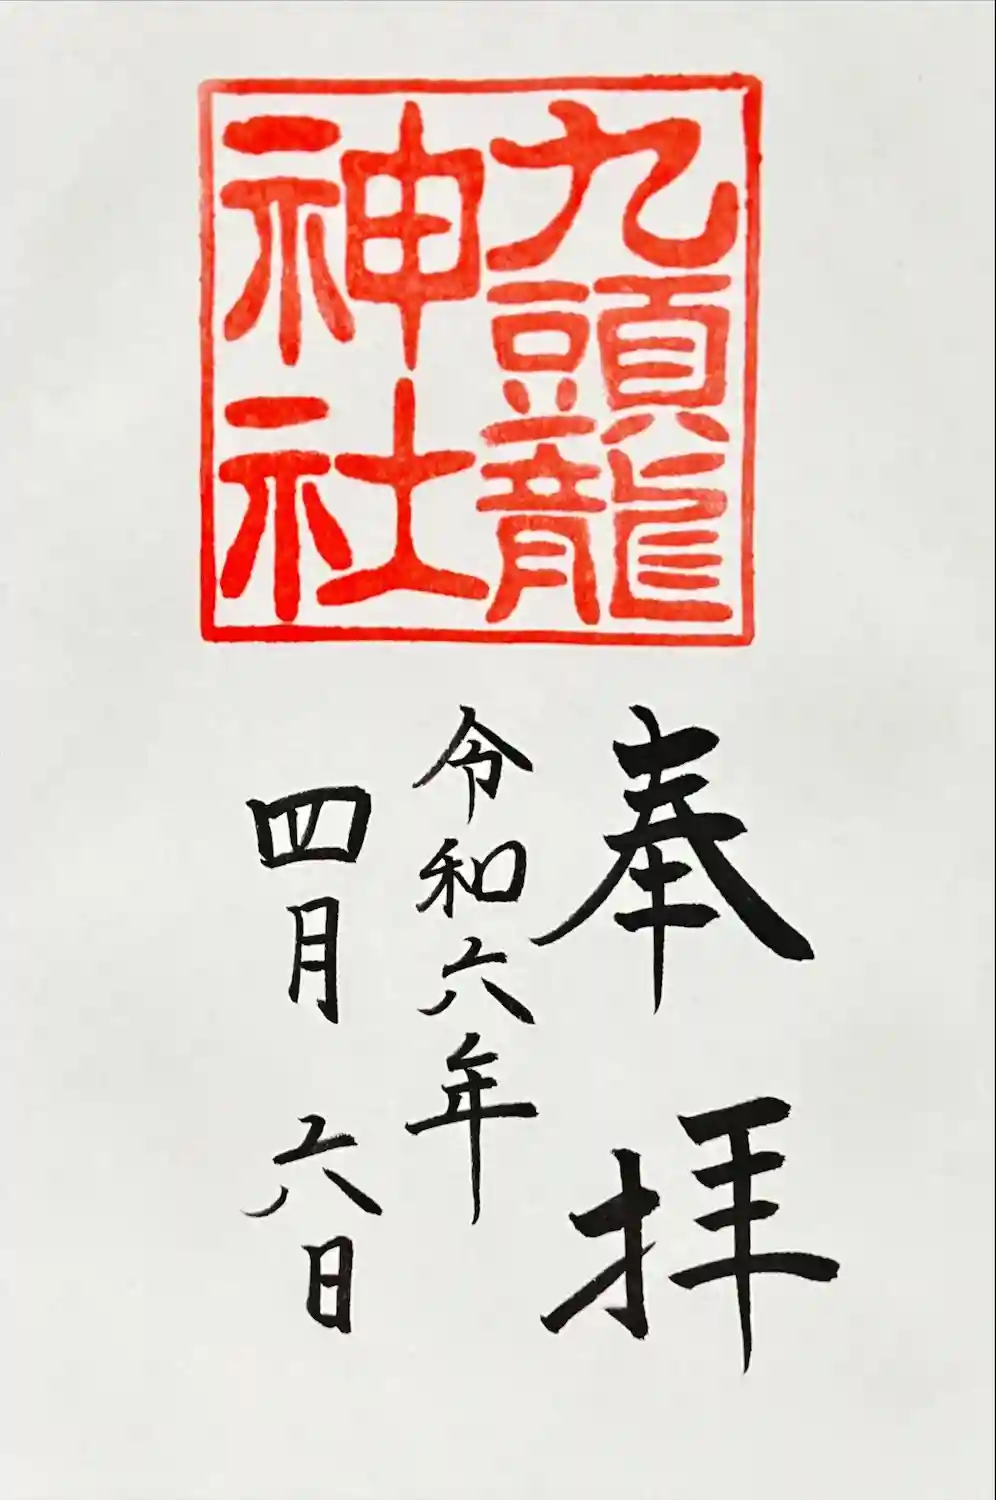 九頭龍
神社
奉拝
令和六年
四月六日